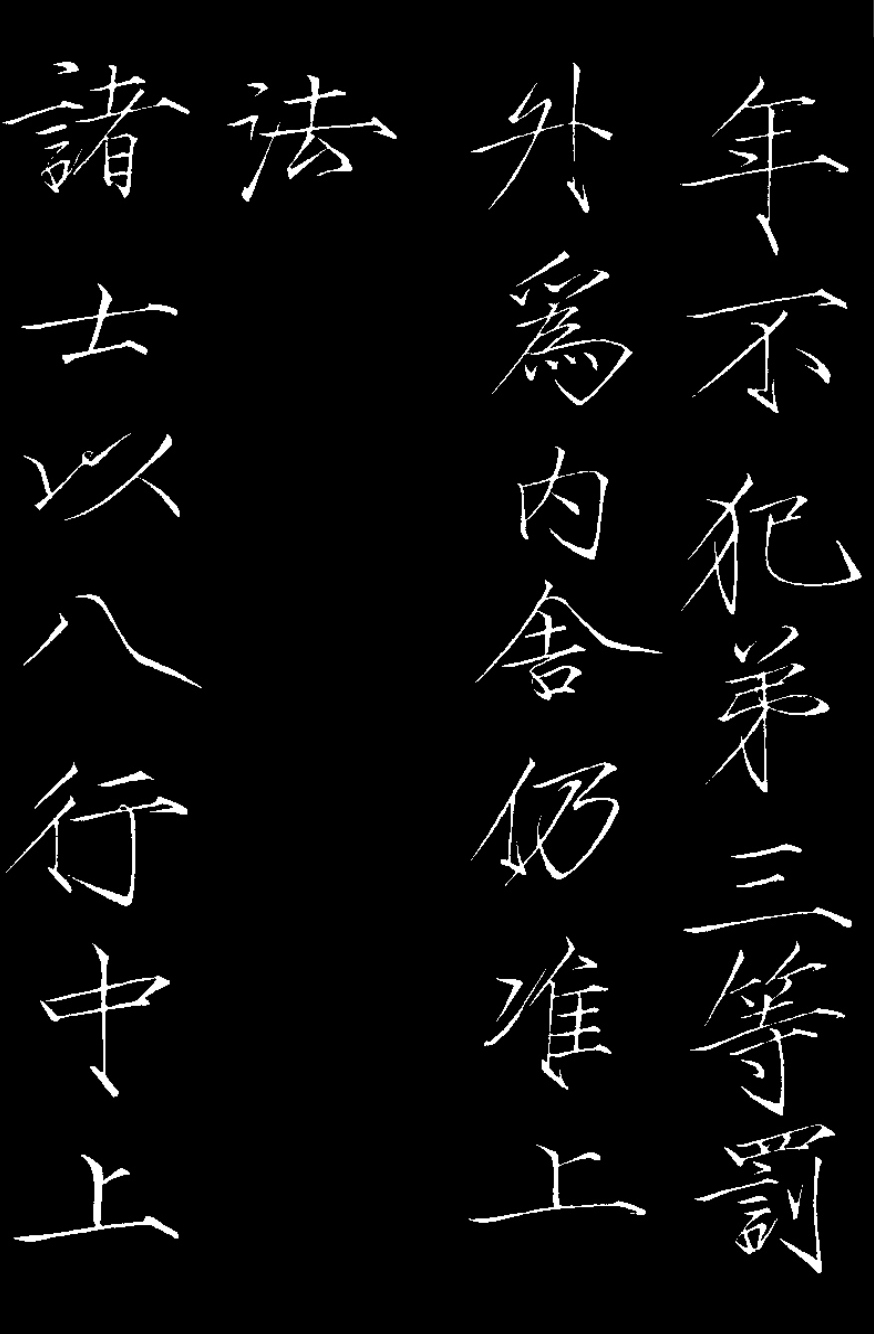 年不犯弟三等罰
外爲内舍仍准上
法
諸士以八行中上